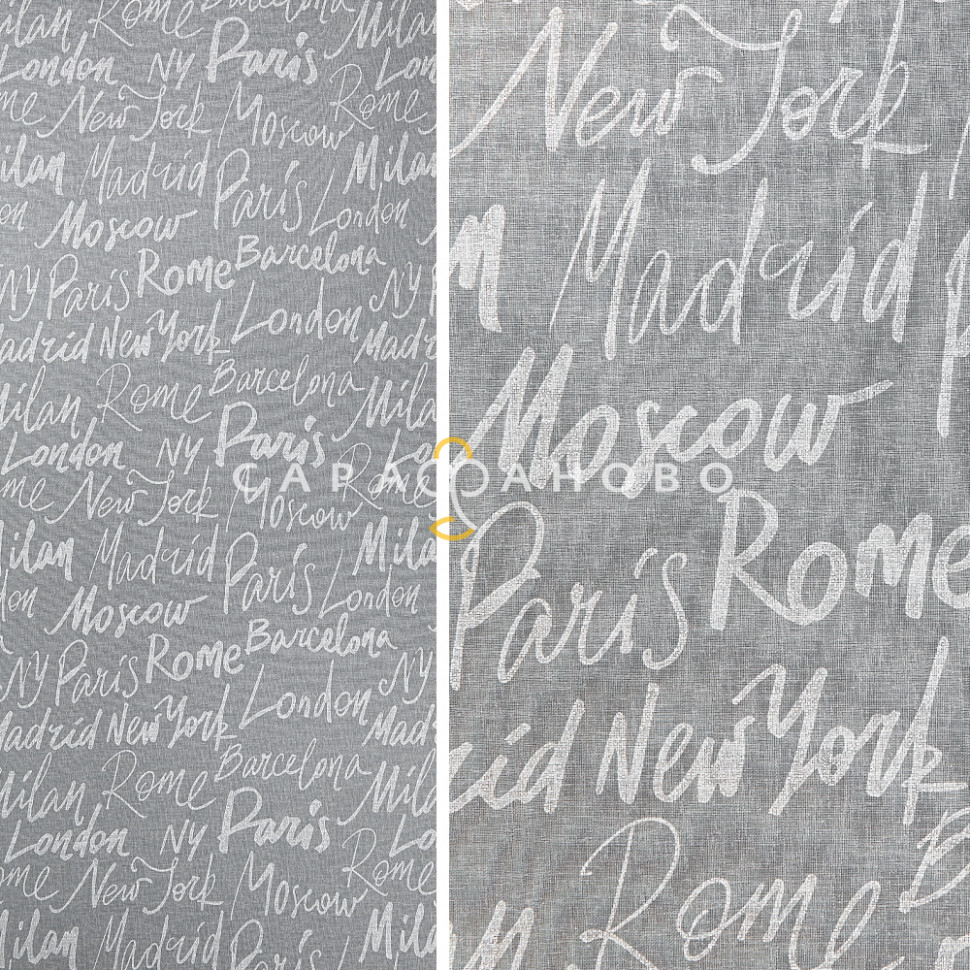 Milan Rome Barcelona Milan
London NY Paris London
Rome New York Moscow Rome
Milan Madrid Paris London Milan
Moscow
NY Paris Rome Barcelona NY
Madrid New York London Madrid
Milan Rome Barcelona Milan
London NY Paris
САРАФАНОВО
Rome New York Moscow Rome
Milan Madrid Paris London Milan
Moscow
NY Paris Rome Barcelona NY
Madrid New York London Madrid
Milan Rome Barcelona Milan
London NY Paris
Rome New York Moscow Rome
Milan Madrid Paris Milan
New York
Madrid
Moscow
Paris Rome
New York
Rome